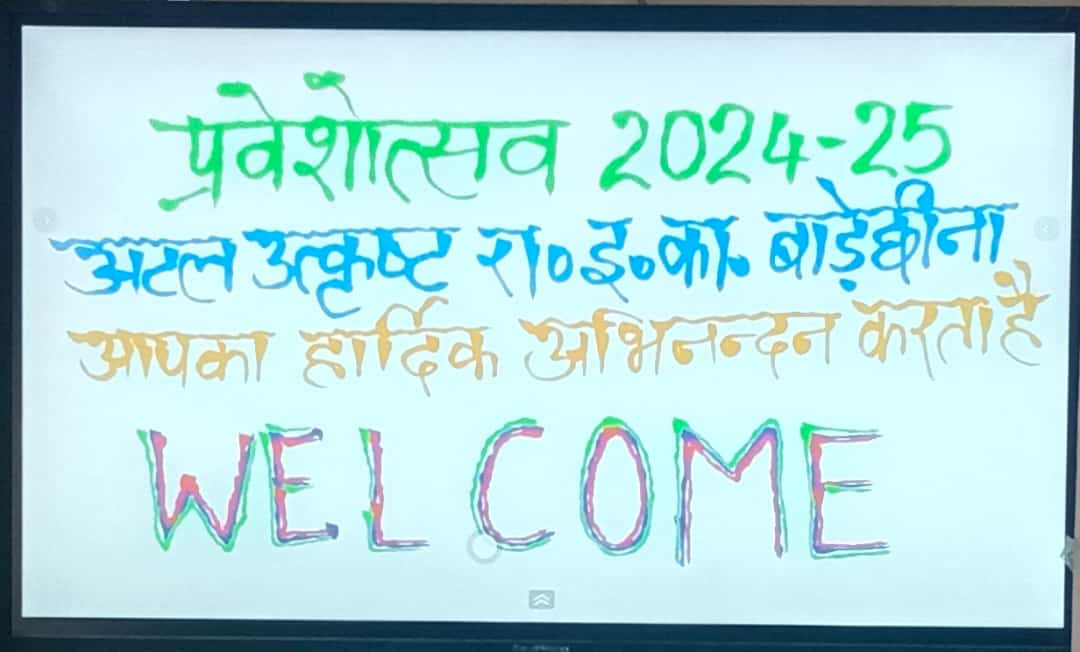 प्रवेशोत्सव 2024-25
अटल उत्कृष्ट रा०इ०का० बाड़ेछीना
आपका हार्दिक अभिनन्दन करता है
WELCOME